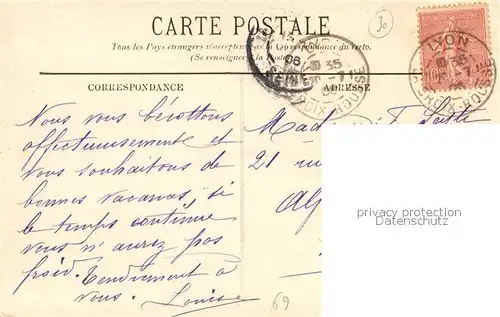 CARTE POSTALE
Tous les Pays étrangers n'acceptent pas la Correspondance au recto.
(Se renseigner à la Poste)
30
LYON
10 35
CROIX-ROUSSE
CORRESPONDANCE
ADRESSE
Nous vous bécottons
affectueusement et
vous souhaitons de
bonnes vacances, si
le temps continue
vous n'aurez pas
froid. Tendrement à
vous. Louise
Mad
21 rue
69
privacy protection
Datenschutz